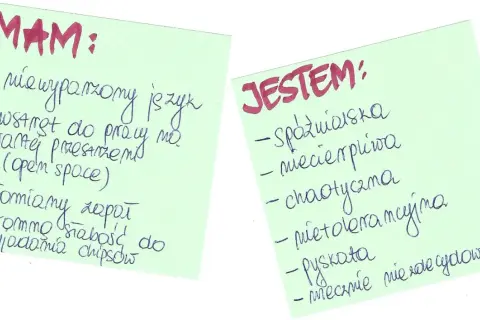 MAM:
niewyparzony język
wstręt do pracy na
przestrzeni
(open space)
słomiany zapał
słabość do
chipsów
JESTEM:
- spóźnialska
- niecierpliwa
- chaotyczna
- nietolerancyjna
- pyskata
- wiecznie niezdecydow